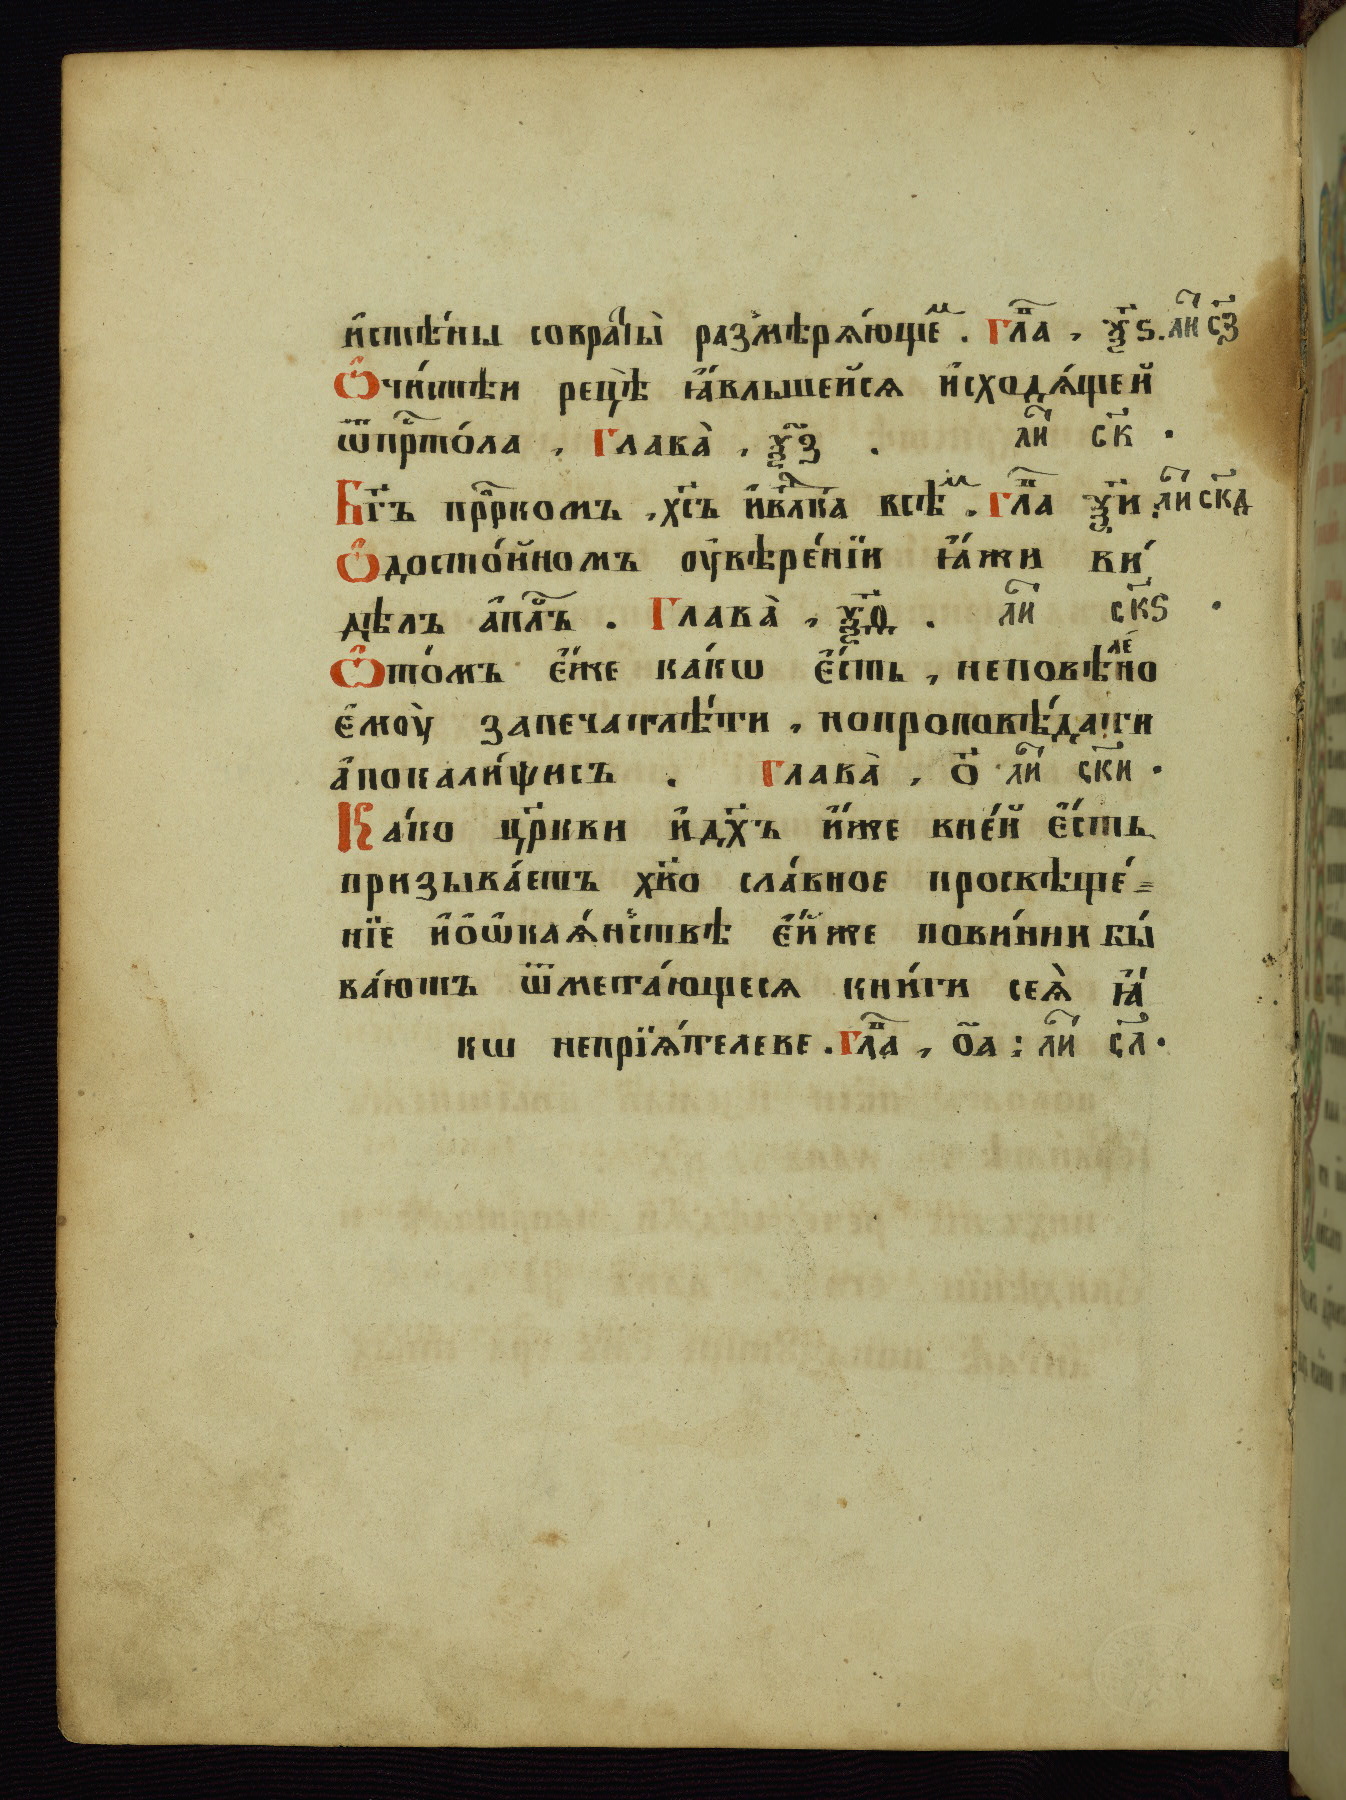 и҆стѣ́ны совраⷮ҇ны̀ размѣрѧ́ющеⷨ . Глⷡ҇а , ѯ҃ѕ . лиⷭ҇ с҃з
Ѽ чи́стѣи рецѣ̀ ꙗ҆́вльшейсѧ и҆сходѧ́щей
ѿпрⷭ҇то́ла , Глава̀ , ѯ҃з . лиⷭ҇ с҃к .
Бг҃ъ прⷪ҇ркомъ , хс҃ъ и҆влⷣка всѣⷨ . Глⷡ҇а ѯ҃и . лиⷭ҇ с҃кд
Ѽдосто́йномъ оу҆вѣре́нїи ꙗ҆́жи ви́
дѣлъ а҆пⷭ҇лъ . Глава̀ , ѯ҃ѳ . лиⷭ҇ с҃кѕ .
Ѽто́мъ є҆́же ка́кѡ є҆́сть , неповѣле́но
є҆моу̀ запечатлѣ́ти , нопроповѣ́дати
а҆покали́ѱисъ . Глава̀ , о҃ лиⷭ҇ с҃ки .
Ка́ко цр҃кви и҆дх҃ъ и҆́же вне́й є҆́сть
призыва́етъ хв҃о сла́вное просвѣще́=
нїе и҆о҆ѡ҆каѧ́нствѣ є҆́йже пови́нни бы́
ва́ютъ ѿмета́ющесѧ кни́ги сеѧ̀ ꙗ҆́
кѡ непрїѧ́телеве . Глⷡ҇а , о҃а : лиⷭ҇ с҃л .